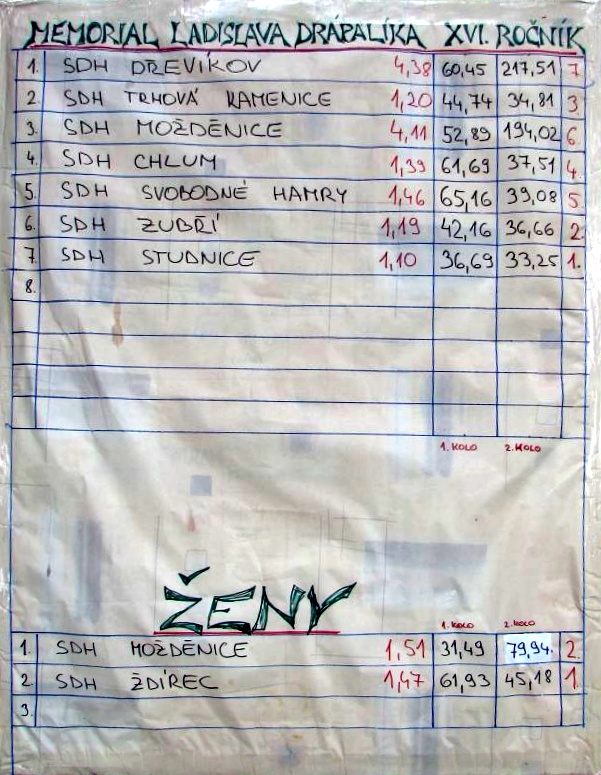 MEMORIAL LADISLAVA DRÁPALÍKA XVI. ROČNÍK
1. SDH DŘEVÍKOV 4,38 60,45 217,51 7.
2. SDH TRHOVÁ KAMENICE 1,20 44,74 34,81 3.
3. SDH MOŽDĚNICE 4,11 52,89 194,02 6.
4. SDH CHLUM 1,39 61,69 37,51 4.
5. SDH SVOBODNÉ HAMRY 1,46 65,16 39,08 5.
6. SDH ZUBŘÍ 1,19 42,16 36,66 2.
7. SDH STUDNICE 1,10 36,69 33,25 1.
8.
1. KOLO 2. KOLO
ŽENY
1. KOLO 2. KOLO
1. SDH MOŽDĚNICE 1,51 31,49 79,94 2.
2. SDH ŽDÍREC 1,47 61,93 45,18 1.
3.